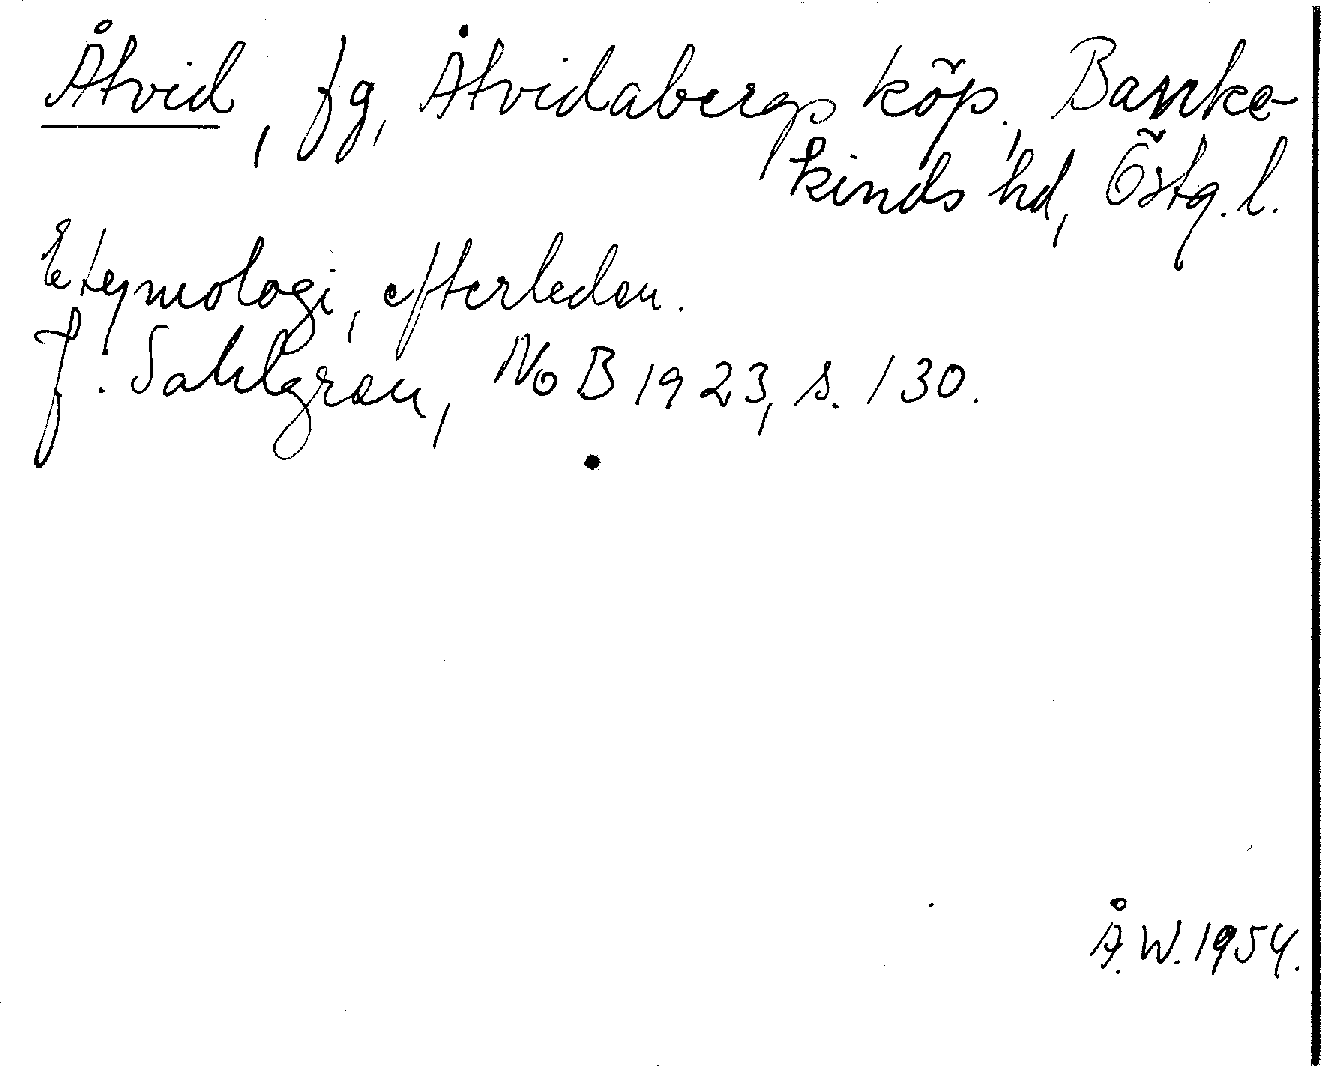 Åtvid, fg, Åtvidabergs köp., Banke-
kinds hd, Östg. l.
Etymologi, efterleden.
J. Sahlgren, NoB 1923, s. 130.
Å.W. 1954.